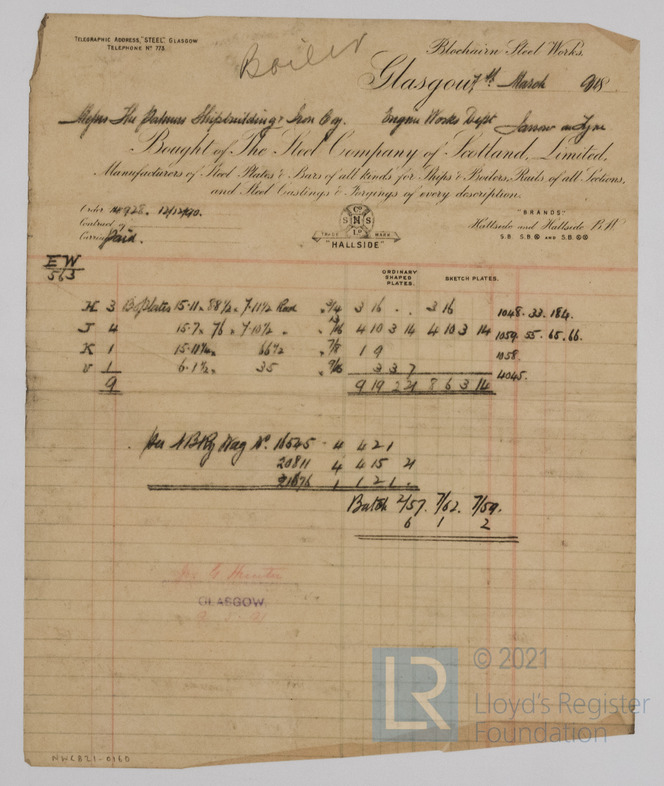 TELEGRAPHIC ADDRESS, "STEEL" GLASGOW
TELEPHONE No 773.
Boiler
Blochairn Steel Works.
Glasgow, 7th March
Messrs The Palmers Shipbuilding & Iron Coy. Engine Works Dept Jarrow on Tyne
Bought of The Steel Company of Scotland, Limited,
Manufacturers of Steel Plates & Bars of all kinds for Ships & Boilers, Rails of all Sections,
and Steel Castings & Forgings of every description.
Order No 928. 12/12/90.
Contract of
Carriage Paid.
Co
S N S
Lo
TRADE MARK
"HALLSIDE"
"BRANDS"
Hallside and Hallside B.B.
S.B. S.B. AND S.B.
EW
563
ORDINARY SHAPED PLATES.
SKETCH PLATES.
H 3 Bo Plates 15-11 × 88 1/2 × 7-11 1/2 Rad × 3/4 3 16 . . 3 16 1048. 33. 184.
J 4 15-7 × 76 × 7-10 1/2 " 4 10 3 14 4 10 3 14 1059. 55. 65. 66.
K 1 15-11 1/4 × 66 1/2 × 7/8 1 9 1058.
v 1 6-1 1/2 × 35 × 9/16 3 3 7 4045.
9 9 19 2 21 8 6 3 14
Per N B Ry Wag No. 16545 - 4 4 2 1
20811 4 4 15 21
21876 1 1 2 1 .
Batch 2/57. 7/62. 7/59.
6 1 2
GLASGOW
© 2021
LR
Lloyd's Register
Foundation
NWCB21-0160